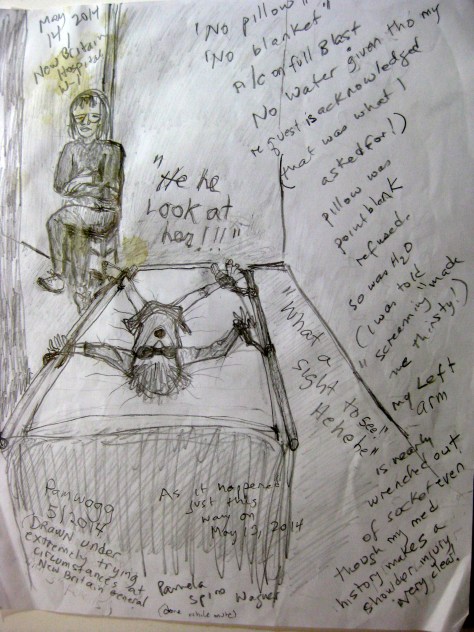 May 2014
14/
New Britain
Hospital
"No pillow"
"No blanket"
A/C on full Blast
No water given tho my
request is acknowledged
(that was what I
asked for!)
Pillow was
point blank
refused.
So was H2O
(I was told
"screeming" made
me thirsty!)
"He he
Look at
her!!!"
"What a
sight to see.
Hehehe"
my Left
arm
is nearly
wrenched out
of socket even
though my med
history makes a
shoulder injury
very clear.
Pamwagg
5/2014
(DRAWN under
extremely trying
circumstances at
New Britain General
As it happened
just this
way on
May 12, 2014
Pamela
Spiro Wagner
(done while